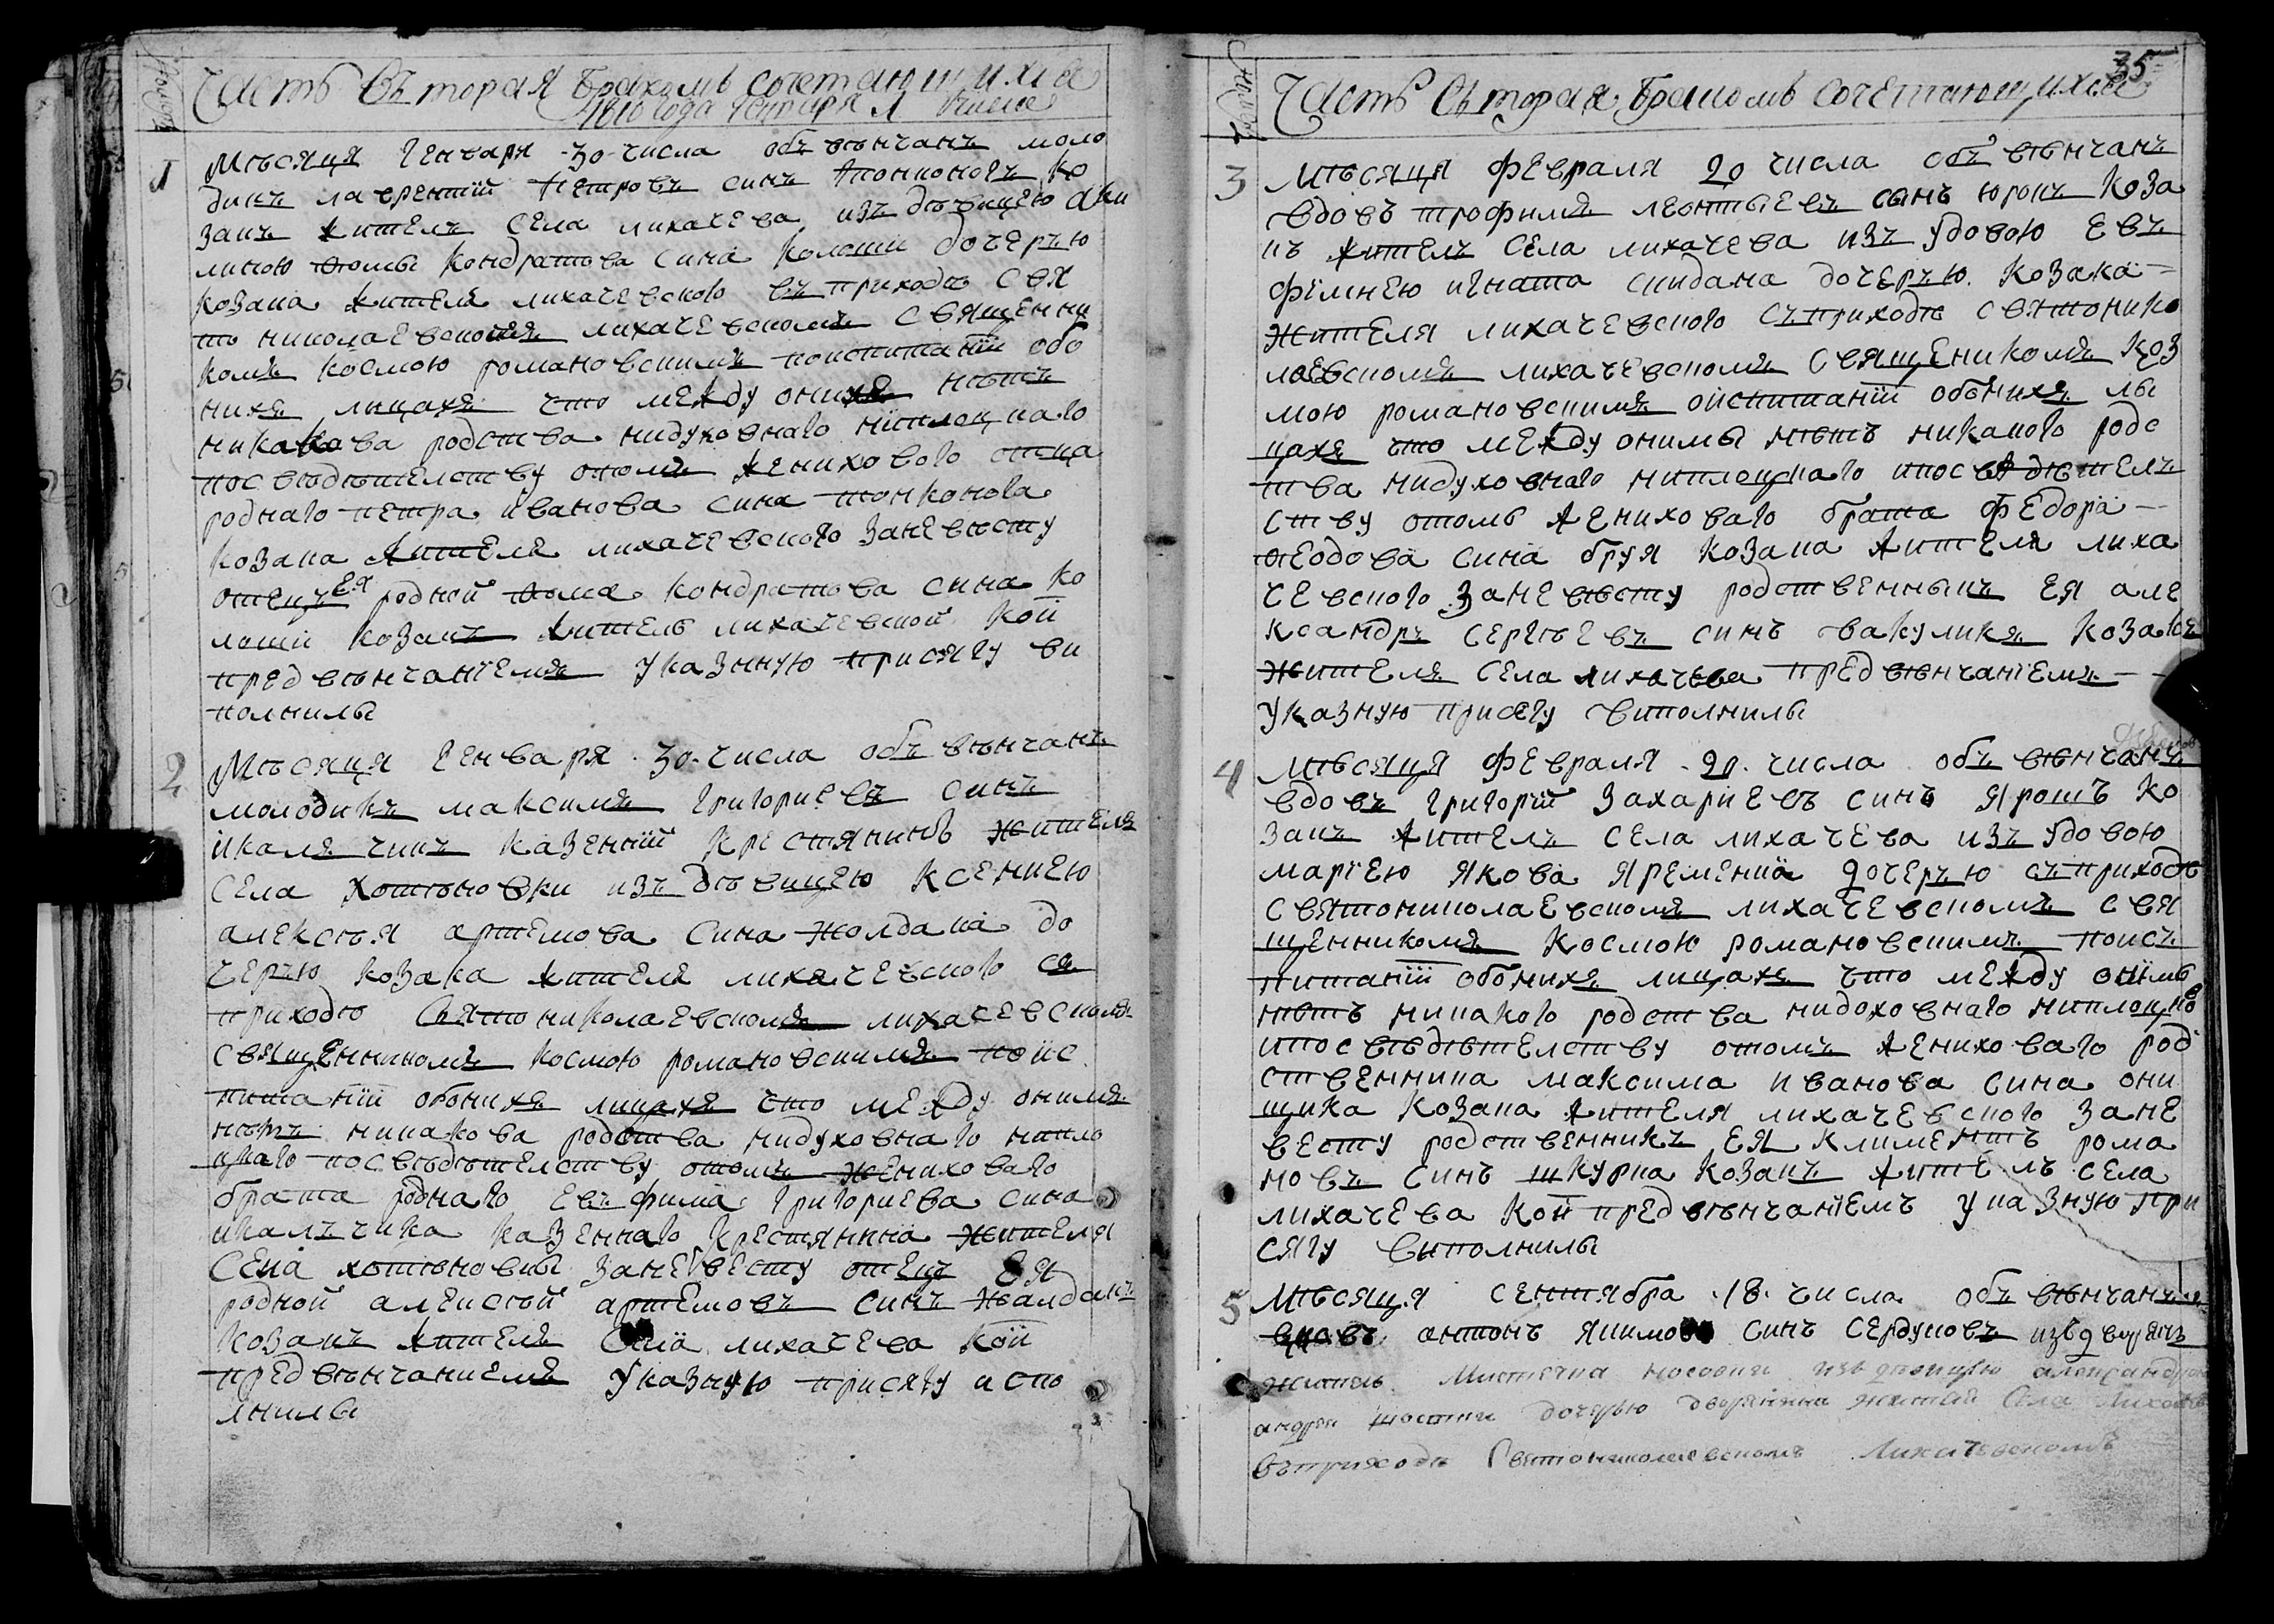 Часть Въторая Бракомъ сочетающихся
1816 года
1
Мѣсяця генъваря 30 числа объвѣнчанъ моло
дикъ лаврентій петровъ синъ тонконогъ ко
закъ жителъ села лихачева изъ дѣвицею аки
линою ѳомы кондратова сина коломіи дочеръю
козака жителя лихачевского въ приходѣ свя
то николаевскомъ лихачевскомъ священни
комъ космою романовскимъ поиспитаніи обо
нихъ лицахъ что между онихъ нѣтъ
никакова родства нидуховнаго ніплоцкаго
посвѣдѣтелству отомъ женихового отца
роднаго петра йванова сина тонконога
козака жителя лихачевского заневѣсту
отецъ ея родной ѳома кондратова сина ко
ломіи козакъ житель лихачевской кои
предвѣнчаніемъ указнную присягу ви
полнилы
2
Мѣсяця генваря 30 числа объвѣнчанъ
молодикъ максимъ григориевъ синъ
икалъчикъ казенній крестянинъ жителъ
села хотѣновки изъ дѣвицею ксениею
алексѣя артемова сина жолдака до
черъю козака жителя лихачевского въ
приходѣ Святониколаевскомъ лихачевскомъ
священникомъ космою романовскимъ поис
питаніи обонихъ лицахъ что между онимъ
нѣтъ никакова родства нидуховнаго нипло
цкаго посвѣдѣтелству отомъ жениховаго
брата роднаго евъфима григориева сина
икалъчика казеннаго крестянина жителя
села хотѣновки заневесту отецъ ея
родной алексѣй артемовъ синъ жолдакъ
козакъ жителъ села лихачева кои
предвѣнчаниемъ указную присягу испо
лнилы
35
Часть Въторая Бракомъ сочетающихся
3
Мѣсяця февраля 20 числа объвѣнчанъ
вдовъ трофимъ леонтьевъ сынъ юрокъ коза
къ жителъ села лихачева изъ удовою евъ
фимиею игната скидана дочеръю козака
жителя лихачевского съприходѣ святонико
лаевскомъ лихачевскомъ священикомъ коз
мою романовскимъ оиспитаніи обѣнихъ лы
цахъ что между онимы нѣтъ никакого родс
тва нидуховнаго ниплоцкаго ипосвѣдѣтелъ
ству отомъ жениховаго брата федора
ѳеодова сина бруя козака жителя лиха
чевского заневѣсту родственныкъ ея але
ксандръ сергѣевъ синъ вакуликъ козакъ
жителя села лихачева предвѣнчаніемъ
указную присягу виполнилы
4
Мѣсяця февраля 20 числа объвѣнчанъ
вдовъ григорій захариевъ синъ ярошъ ко
закъ жителъ села лихачева изъ удовою
маріею якова яременка дочеръю съприходѣ
святониколаевскомъ лихачевскомъ свя
щенникомъ космою романовскимъ поисъ
питаніи обонихъ лицахъ что между онімы
нѣтъ никакого родства нидоховнаго ниплоцко
ипосвѣдѣтелству отомъ жениховаго род
ственника максима иванова сина они
щика козака жителя лихачевского зане
весту родственникъ ея климентъ рома
новъ синъ шкурка козакъ жителъ села
лихачева кои предвѣнчаніемъ указную при
сягу виполнилы
5
Мѣсяця сентября 18 числа объвѣнчанъ
вдовъ антонъ якимовъ синъ сердуковъ изъдворянъ
житель мистечка носовки изъ дѣвицею александрою
андрея дочерью дворянина жителя села лихачева
въприходѣ Святониколаевскомъ Лихачевскомъ